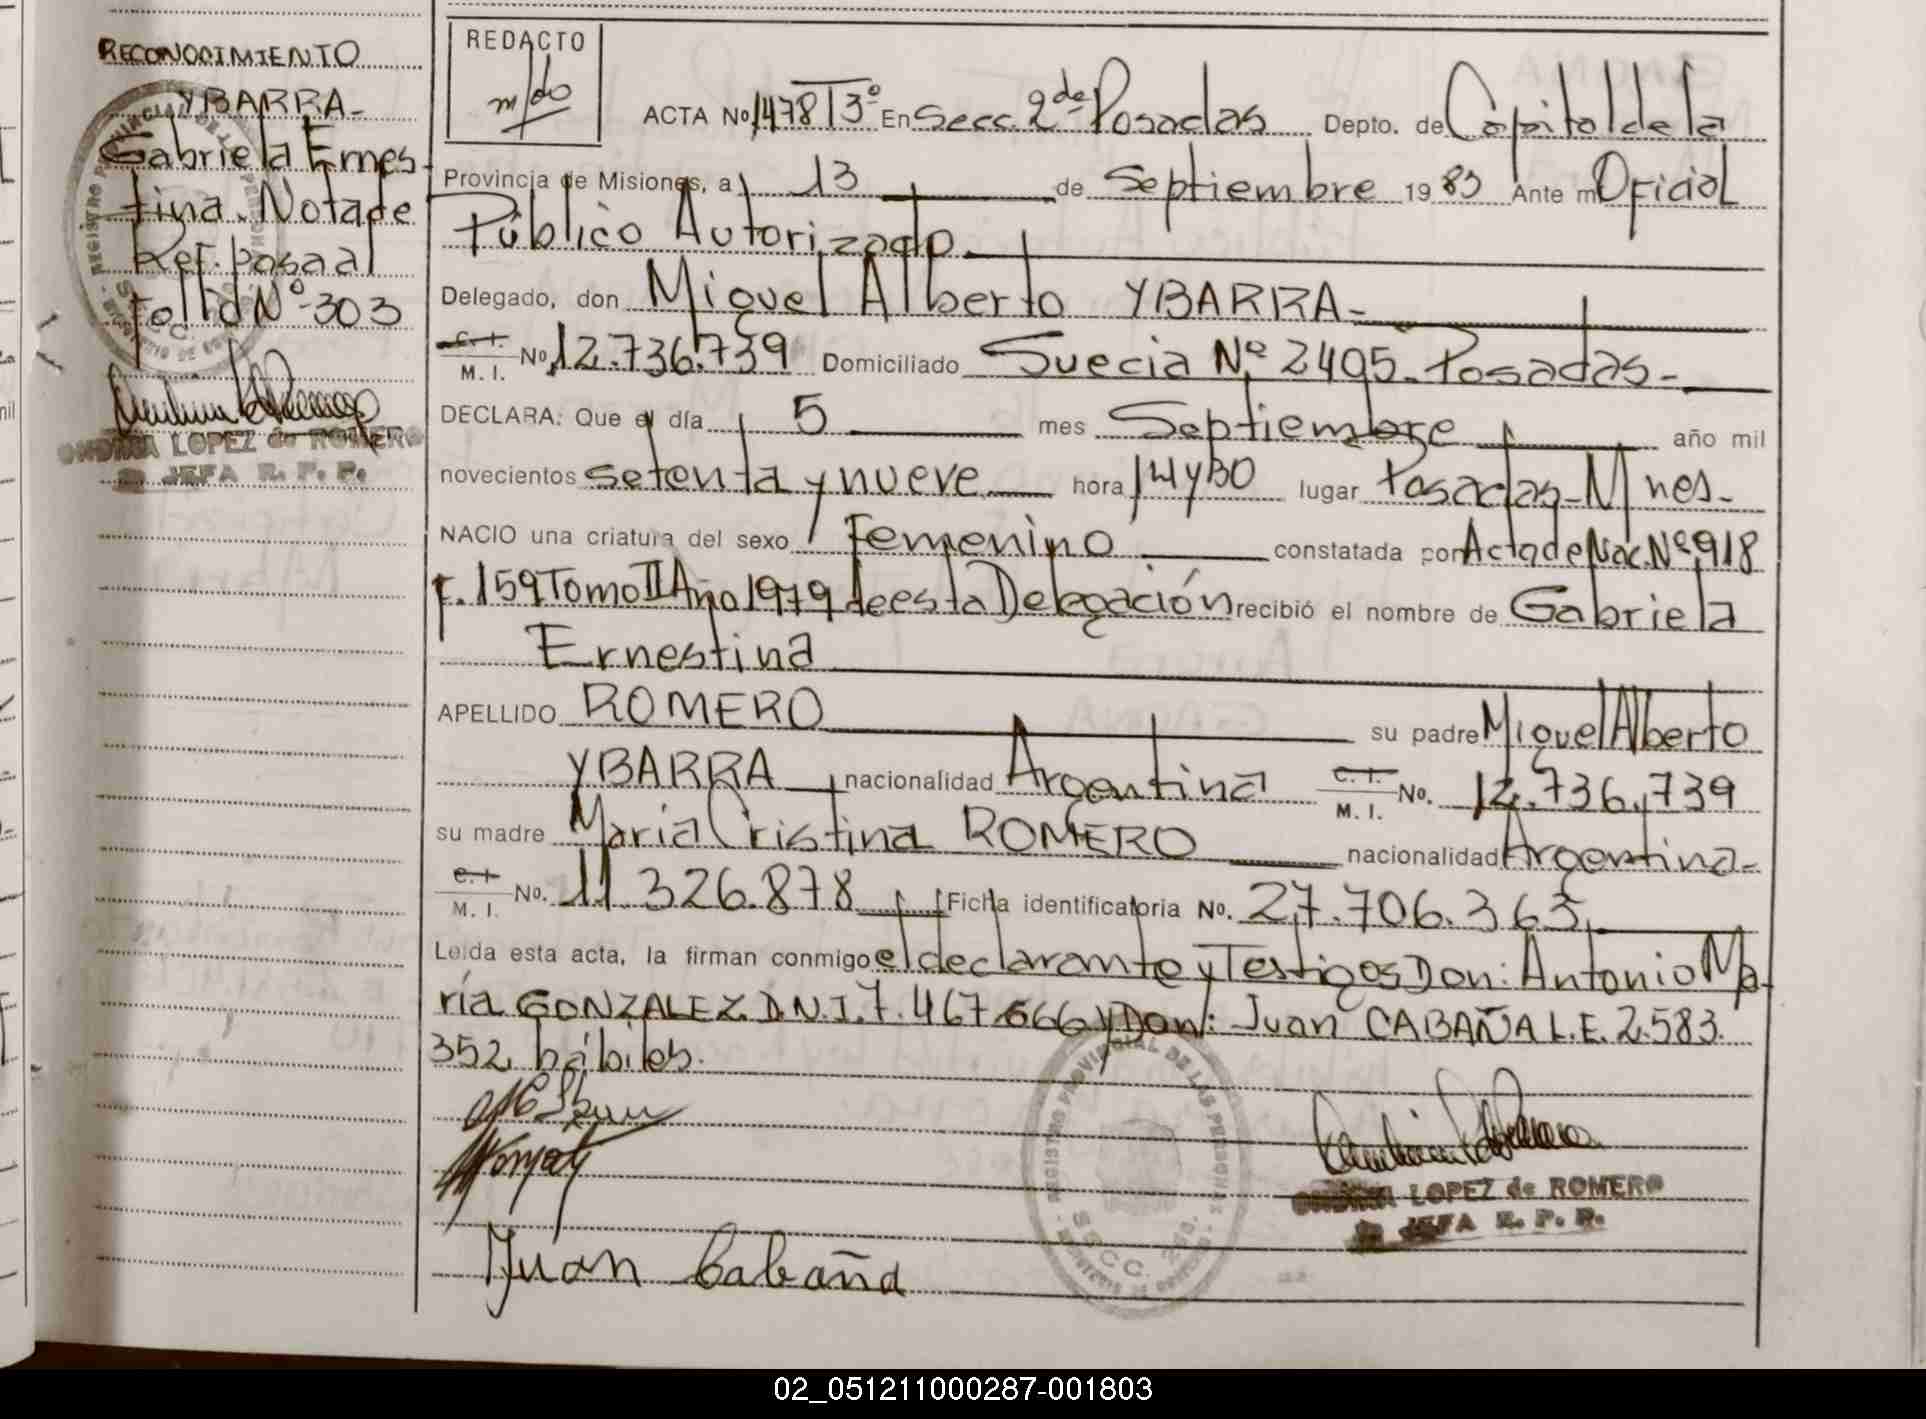 RECONOCIMIENTO
YBARRA-
Gabriela Ernes-
tina. Nota de
Ref. posa al
folio Nº-303
LOPEZ de ROMERO
JEFA R. P. P.
REDACTO
ACTA No. 1478 T 3º En Secc. 2da Posadas Depto. de Capital de la
Provincia de Misiones, a 13 de Septiembre 1983 Ante mi Oficial
Público Autorizado
Delegado, don Miguel Alberto YBARRA-
C. I. M. I. No. 12.736.739 Domiciliado Suecia Nº 2495- Posadas-
DECLARA: Que el día 5 mes Septiembre año mil
novecientos setenta y nueve hora 14 y 30 lugar Posadas-Mnes-
NACIO una criatura del sexo Femenino constatada por Acta de Nac. Nº 918
F. 159 Tomo II Año 1979 de esta Delegación recibió el nombre de Gabriela
Ernestina
APELLIDO ROMERO su padre Miguel Alberto
YBARRA nacionalidad Argentina C. I. M. I. No. 12.736.739
su madre María Cristina ROMERO nacionalidad Argentina-
C. I. M. I. No. 11.326.878 Ficha identificatoria No. 27.706.363
Leída esta acta, la firman conmigo el declarante y Testigos Don: Antonio Ma-
ría GONZALEZ D.N.I. 7.467.666 y Don: Juan CABAÑA L.E. 2.583.
352 hábiles.
REGISTRO PROVINCIAL DE LAS PERSONAS
SECC. 2da.
LOPEZ de ROMERO
JEFA R. P. P.
Juan Cabaña
02_051211000287-001803